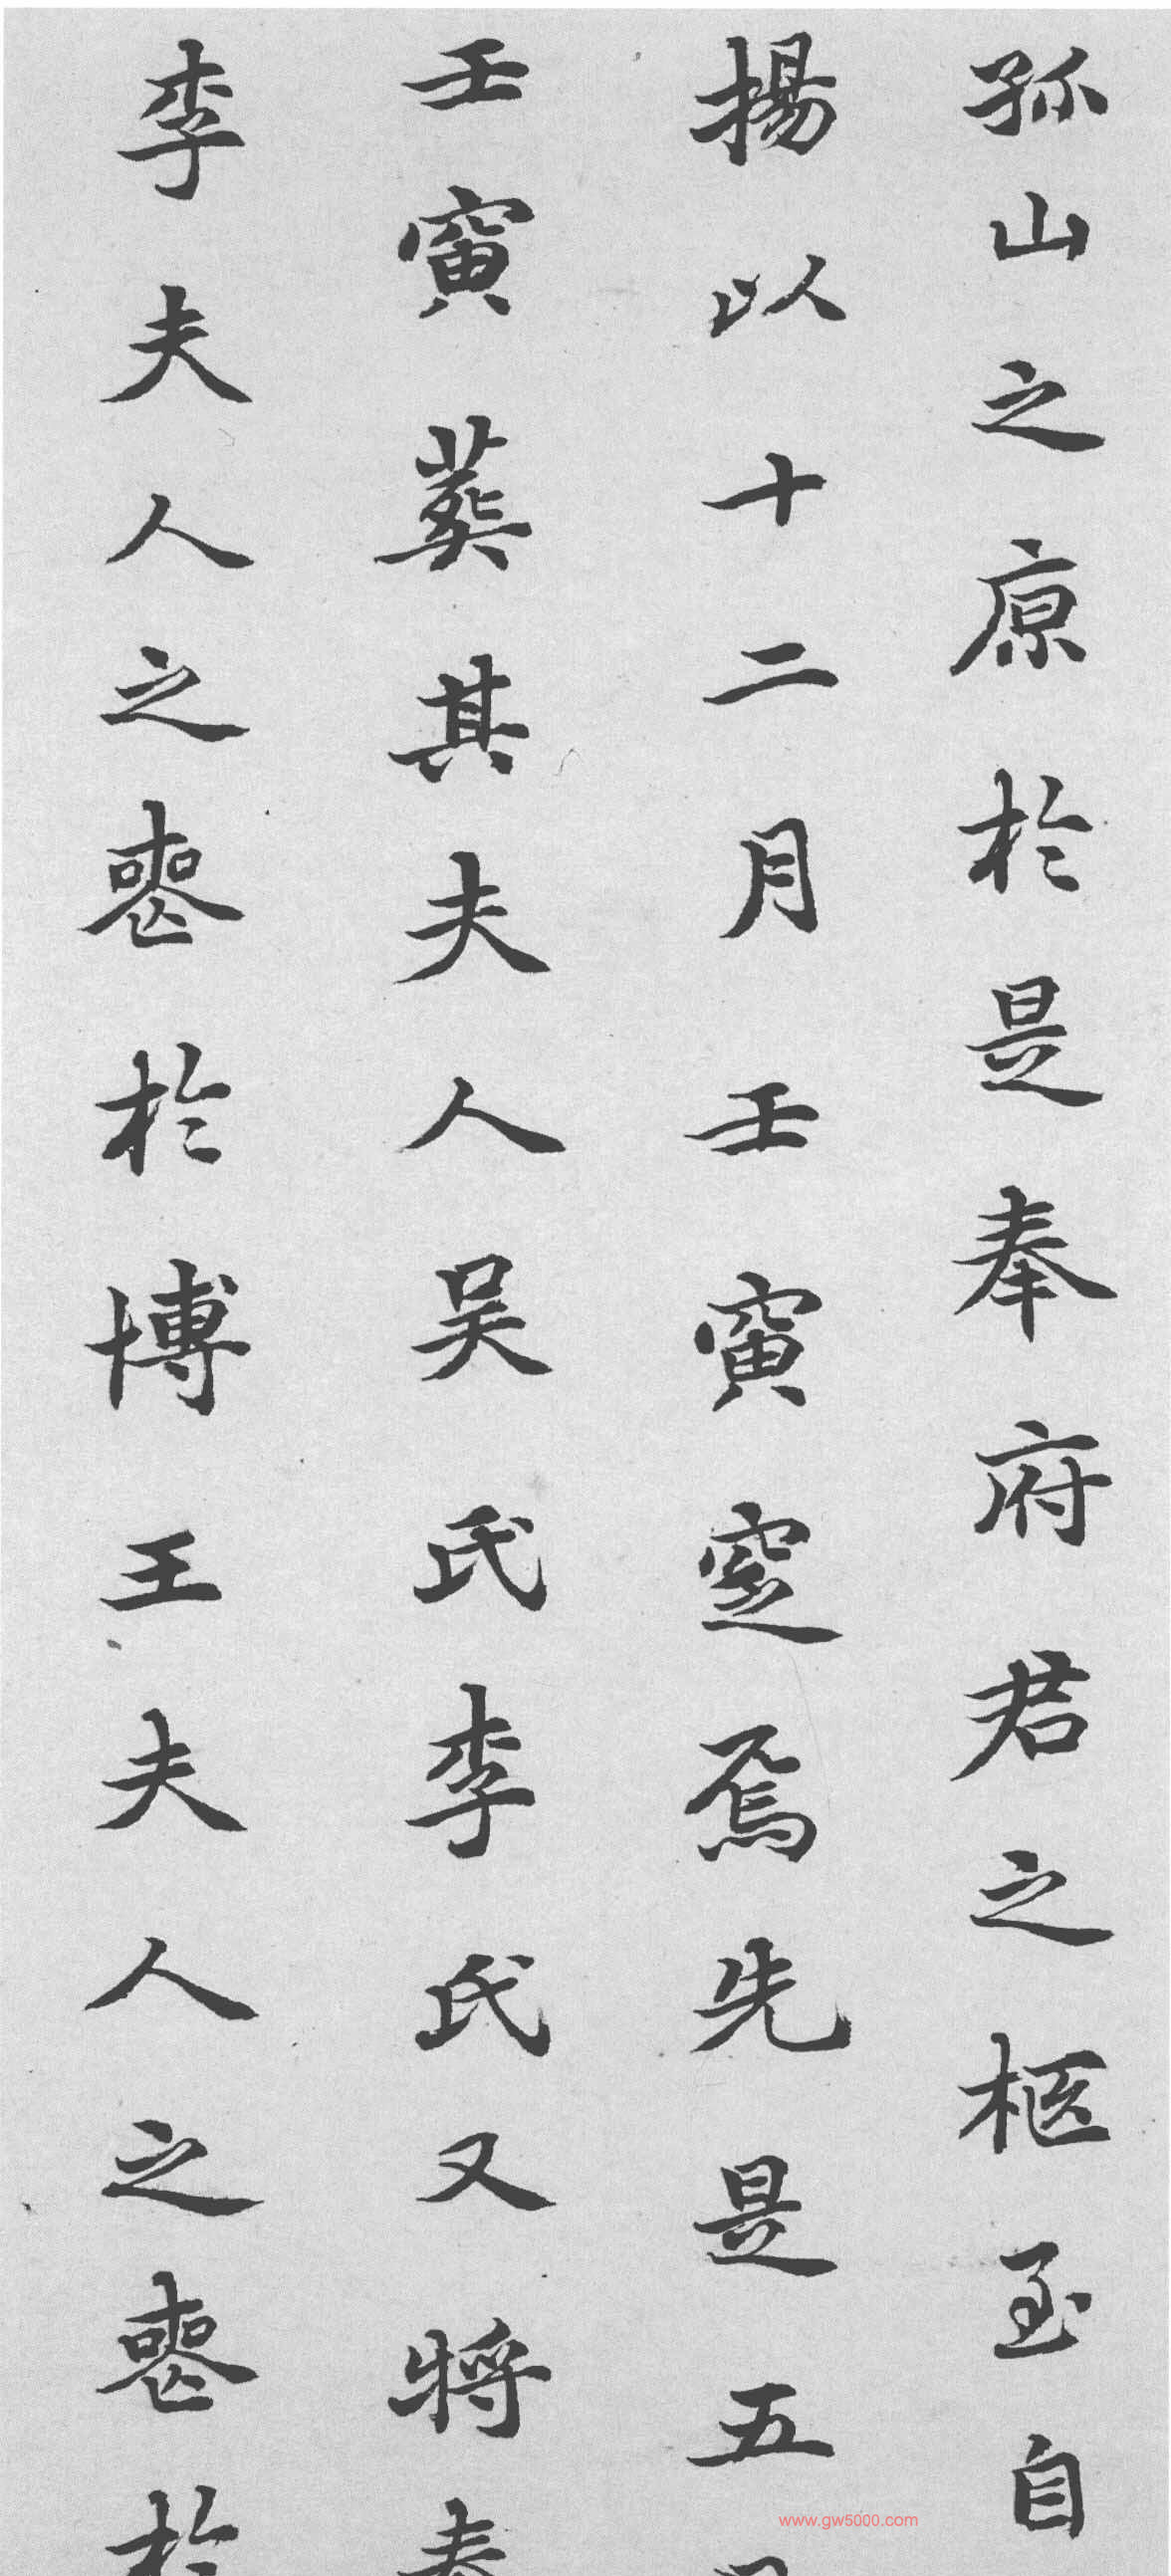 孤山之原於是奉府君之柩至自
揚以十二月壬寅窆焉先是五月
壬寅葬其夫人吴氏李氏又将奉
李夫人之喪於博王夫人之喪於
www.gw5000.com